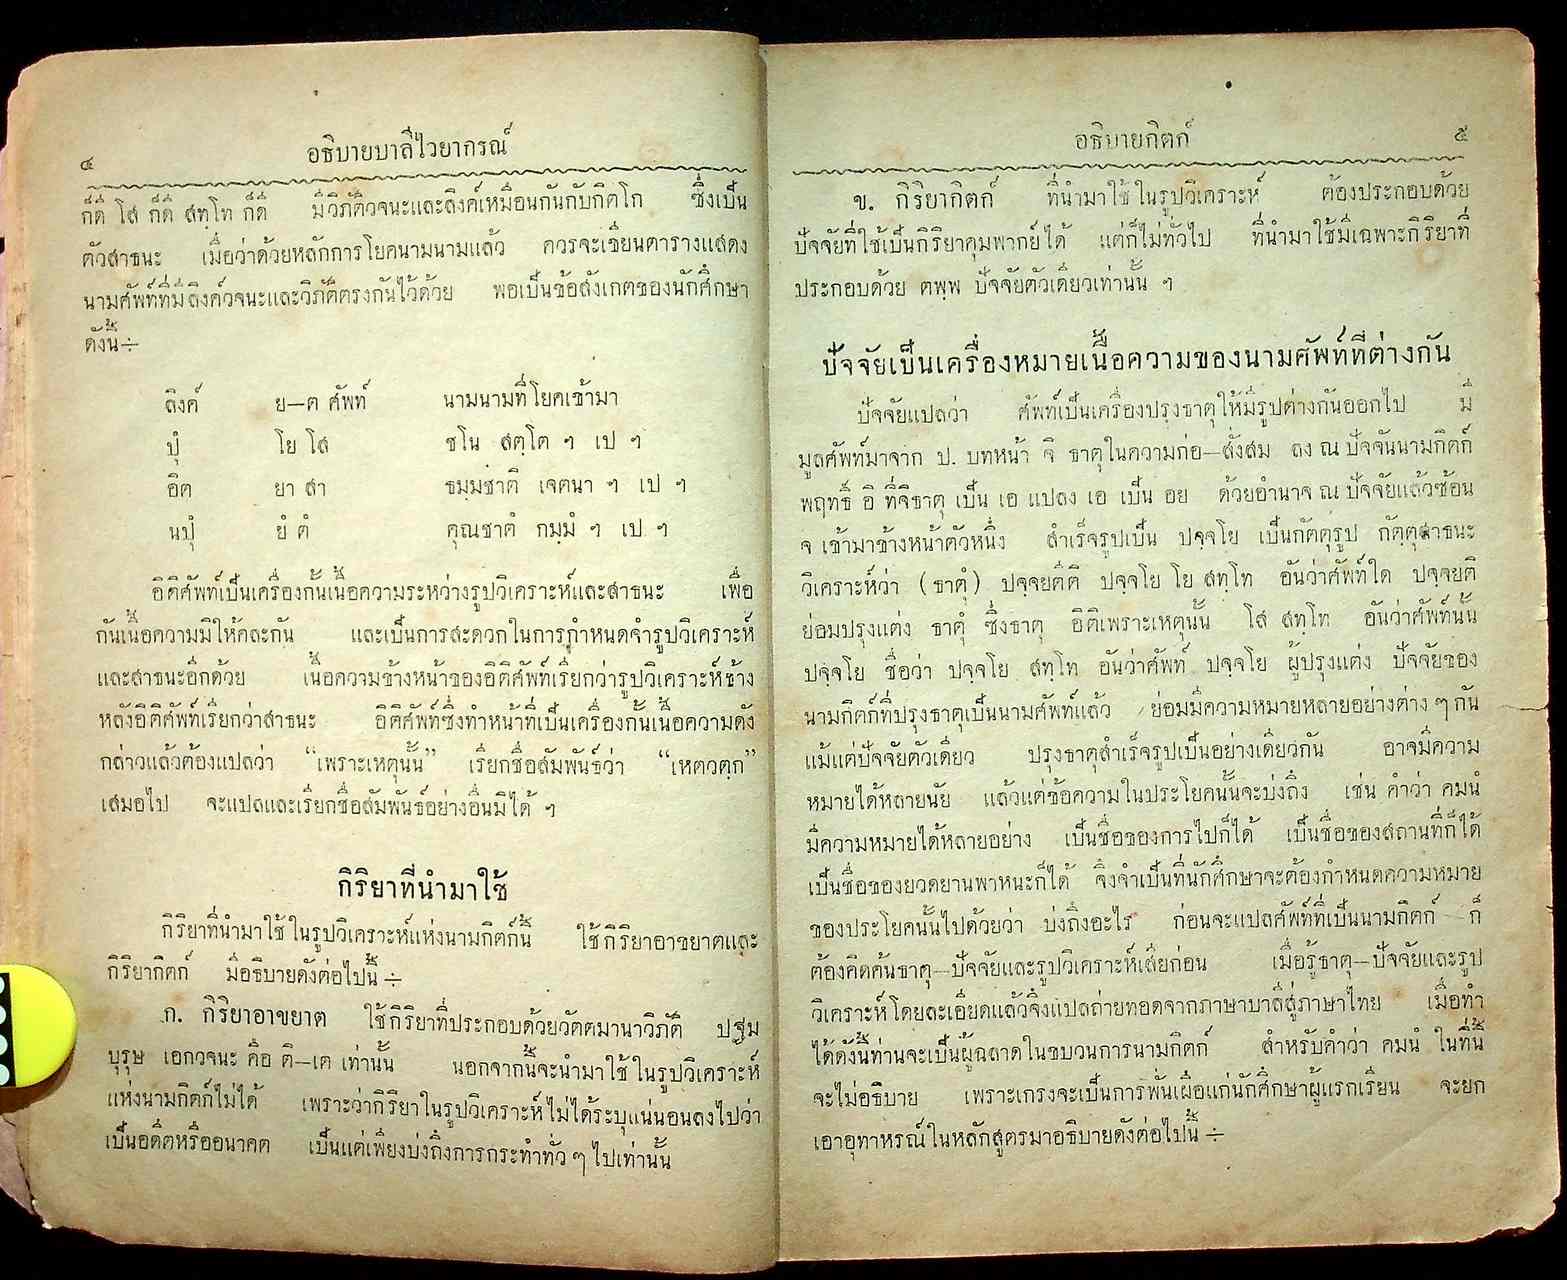 ๔
อธิบายบาลีไวยากรณ์
ก็ดี โส ก็ดี สทฺโท ก็ดี มีวิภัติวจนะและลิงค์เหมือนกันกับกิตโก ซึ่งเป็น
ตัวสาธนะ เมื่อว่าด้วยหลักการโยคนามนามแล้ว ควรจะเขียนตารางแสดง
นามศัพท์ที่มีลิงค์วจนะและวิภัติตรงกันไว้ด้วย พอเป็นข้อสังเกตของนักศึกษา
ดังนี้÷
ลิงค์ ย—ต ศัพท์ นามนามที่โยคเข้ามา
ปุํ โย โส ชโน สตฺโต ฯ เป ฯ
อิต ยา สา ธมฺมชาติ เจตนา ฯ เป ฯ
นปุํ ยํ ตํ คุณชาตํ กมฺมํ ฯ เป ฯ
อิติศัพท์เป็นเครื่องกั้นเนื้อความระหว่างรูปวิเคราะห์และสาธนะ เพื่อ
กันเนื้อความมิให้คละกัน และเป็นการสะดวกในการกำหนดจำรูปวิเคราะห์
และสาธนะอีกด้วย เนื้อความข้างหน้าของอิติศัพท์เรียกว่ารูปวิเคราะห์ข้าง
หลังอิติศัพท์เรียกว่าสาธนะ อิติศัพท์ซึ่งทำหน้าที่เป็นเครื่องกั้นเนื้อความดัง
กล่าวแล้วต้องแปลว่า “เพราะเหตุนั้น” เรียกชื่อสัมพันธ์ว่า “เหตวตฺถ”
เสมอไป จะแปลและเรียกชื่อสัมพันธ์อย่างอื่นมิได้ ฯ
กิริยาที่นำมาใช้
กิริยาที่นำมาใช้ในรูปวิเคราะห์แห่งนามกิตก์นี้ ใช้กิริยาอาขยาตและ
กิริยากิตก์ มีอธิบายดังต่อไปนี้ ÷
ก. กิริยาอาขยาต ใช้กิริยาที่ประกอบด้วยวัตตมานาวิภัติ ปฐม
บุรุษ เอกวจนะ คือ ติ—เต เท่านั้น นอกจากนี้จะนำมาใช้ในรูปวิเคราะห์
แห่งนามกิตก์ไม่ได้ เพราะว่ากิริยาในรูปวิเคราะห์ไม่ได้ระบุแน่นอนลงไปว่า
เป็นอดีตหรืออนาคต เป็นแต่เพียงบ่งถึงการกระทำทั่ว ๆ ไปเท่านั้น
อธิบายกิตก์
๕
ข. กิริยากิตก์ ที่นำมาใช้ในรูปวิเคราะห์ ต้องประกอบด้วย
ปัจจัยที่ใช้เป็นกิริยาคุมพากย์ได้ แต่ก็ไม่ทั่วไป ที่นำมาใช้มีเฉพาะกิริยาที่
ประกอบด้วย ตพฺพ ปัจจัยตัวเดียวเท่านั้น ฯ
ปัจจัยเป็นเครื่องหมายเนื้อความของนามศัพท์ที่ต่างกัน
ปัจจัยแปลว่า ศัพท์เป็นเครื่องปรุงธาตุให้มีรูปต่างกันออกไป มี
มูลศัพท์มาจาก ป. บทหน้า จิ ธาตุในความก่อ—สั่งสม ลง ณ ปัจจันนามกิตก์
พฤทธิ์ อิ ที่จิธาตุ เป็น เอ แปลง เอ เป็น อย ด้วยอำนาจ ณ ปัจจัยแล้วซ้อน
จ เข้ามาข้างหน้าตัวหนึ่ง สำเร็จรูปเป็น ปจฺจโย เป็นกัตตุรูป กัตฺตุสาธนะ
วิเคราะห์ว่า (ธาตุํ) ปจฺจยตีติ ปจฺจโย โย สทฺโท อันว่าศัพท์ใด ปจฺจยติ
ย่อมปรุงแต่ง ธาตุํ ซึ่งธาตุ อิติเพราะเหตุนั้น โส สทฺโท อันว่าศัพท์นั้น
ปจฺจโย ชื่อว่า ปจฺจโย สทฺโท อันว่าศัพท์ ปจฺจโย ผู้ปรุงแต่ง ปัจจัยของ
นามกิตก์ที่ปรุงธาตุเป็นนามศัพท์แล้ว ย่อมมีความหมายหลายอย่างต่าง ๆ กัน
แม้แต่ปัจจัยตัวเดียว ปรุงธาตุสำเร็จรูปเป็นอย่างเดียวกัน อาจมีความ
หมายได้หลายนัย แล้วแต่ข้อความในประโยคนั้นจะบ่งถึง เช่น คำว่า คมนํ
มีความหมายได้หลายอย่าง เป็นชื่อของการไปก็ได้ เป็นชื่อของสถานที่ก็ได้
เป็นชื่อของยวดยานพาหนะก็ได้ จึงจำเป็นที่นักศึกษาจะต้องกำหนดความหมาย
ของประโยคนั้นไปด้วยว่า บ่งถึงอะไร ก่อนจะแปลศัพท์ที่เป็นนามกิตก์ ก็
ต้องคิดค้นธาตุ—ปัจจัยและรูปวิเคราะห์เสียก่อน เมื่อรู้ธาตุ—ปัจจัยและรูป
วิเคราะห์โดยละเอียดแล้วจึงแปลถ่ายทอดจากภาษาบาลีสู่ภาษาไทย เมื่อทำ
ได้ดังนี้ท่านจะเป็นผู้ฉลาดในขบวนการนามกิตก์ สำหรับคำว่า คมนํ ในที่นี้
จะไม่อธิบาย เพราะเกรงจะเป็นการฟั่นเฝือแก่นักศึกษาผู้แรกเรียน จะยก
เอาอุทาหรณ์ในหลักสูตรมาอธิบายดังต่อไปนี้ ÷